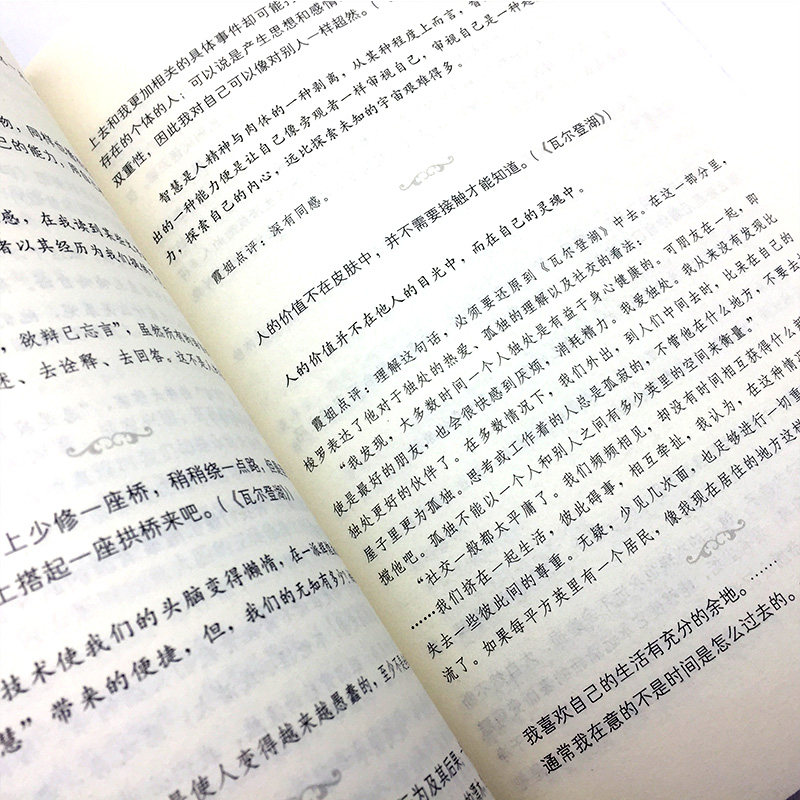 物，同样
己的能力，
感，在我读到某些
者以其经历为我们
，欲辩已忘言”，虽然所有
述、去诠释、去回答。这不是
上少修一座桥，稍稍绕一点路，
上搭起一座拱桥来吧。（《瓦尔登湖》）
技术使我们的头脑变得懒惰，在一
慧”带来的便捷，但，我们的无知有多少
是使人变得越来越愚蠢的，至少不
为及其后果
上去和我更加相关的具体事件却可能
存在的个体的人；可以说是产生思想和感情
双重性，因此我对自己可以像对别人一样超然。（
智慧是人精神与肉体的一种剥离，从某种程度上而言，智
出的一种能力便是让自己像旁观者一样审视自己，审视自己是一种超
力，探索自己的内心，远比探索未知的宇宙艰难得多。
霞姐点评：深有同感。
人的价值不在皮肤中，并不需要接触才能知道。（《瓦尔登湖》）
人的价值并不在他人的目光中，而在自己的灵魂中。
霞姐点评：理解这句话，必须要还原到《瓦尔登湖》中去。在这一部分里，
梭罗表达了他对于独处的热爱、孤独的理解以及社交的看法：
“我发现，大多数时间一个人独处是有益于身心健康的。可朋友在一起，即
使是最好的朋友，也会很快感到厌烦，消耗精力。我爱独处。我从来没有发现比
独处更好的伙伴了。在多数情况下，我们外出，到人们中间去时，比呆在自己的
屋子里更为孤独。思考或工作着的人总是孤寂的，不管他在什么地方，不要去
搅他吧。孤独不能以一个人和别人之间有多少英里的空间来衡量。”
“社交一般都太平庸了。我们频频相见，却没有时间相互获得什么新
……我们挤在一起生活，彼此碍事，相互牵扯，我认为，在这种情况
失去一些彼此间的尊重。无疑，少见几次面，也足够进行一切重
流了。如果每平方英里有一个居民，像我现在居住的地方这样
我喜欢自己的生活有充分的余地。……
通常我在意的不是时间是怎么过去的。